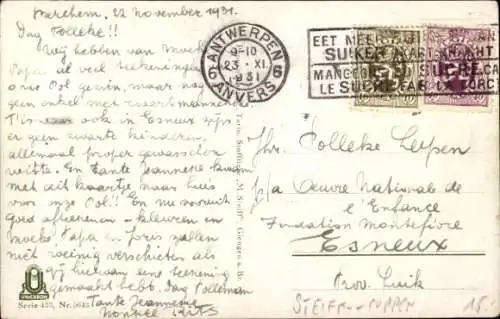 Berchem, 22 November 1931.
Dag Polleke!!
Wij hebben van Moeke
Papa al veel teekeningen
ons Pol geven, maar nog
geen enkel met zwarte mannekens
T'is waar ook in Esneux zijn
er geen zwarte kinderen,
allemaal proper gewasschen
witte. En Tante Jeanneke kwam
met dit kaartje naar huis
voor onze Pol!! En nu vooruit
goed afteekenen - kleuren en
Moeke Papa en Joris zullen
niet weinig verschieten als
gij hiervan eene teekening
gemaakt hebt. Dag Polleman
Tante Jeanneke
Nonkel
Serie 433, Nr.
ANTWERPEN
9-10
23 XI
1931
6 6
ANVERS
EET MEER
SUIKER
MANGEZ SUCRE.CA
LE SUCRE FORCE
Jhr. Polleke Leysen
p/a Oeuvre Nationale de
l'Enfance
Fundation Montefiore
Esneux
Prov. Luik
STEIFF-PUPPEN
15.-